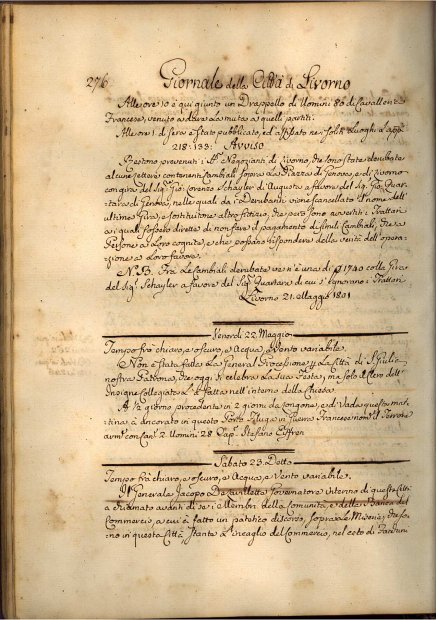 276 Giornale della Città di Livorno
Alle ore 10 è qui giunto un Drappello di Uomini 80 di Cavalleria
Francese, venuto a dare la muta a quelli partiti.
Alle ore 1 di sera è stato pubblicato, ed affissato ne' soliti Luoghi l'app.
218:133: Avviso
Restono prevenuti i SS.ri Negozianti di Livorno, che sono state derubate
alcune lettere contenenti Cambiali sopra la Piazza di Genova, e di Livorno
con gira del Sig.re Gio: Lorenzo Schayler di Augusta a favore del Sig. Gio: Quar-
tara di Genova, nelle quali da i Derubanti viene scancellato il nome dell'
ultimo Giro, e sostituitone altro fittizio, che però sono avvertiti i Trattari
a i quali fossero dirette di non fare il pagamento di simili Cambiali, che a
Persone a Loro cognite, e che possano rispondere della verità dell'opera-
zione a Loro favore.
N.B. Frà le Cambiali derubate ve n'è una di 1740 colla Gira
del Sig.re Schayler a favore del Sig.re Quartara di cui s'ignorano i Trattari
Livorno 21. Maggio 1801
Venerdì 22 Maggio
Tempo frà chiaro, e oscuro, e Acqua, e Vento variabile.
Non è stata fatta la General Processione p. la Città di S. Giulia
nostra Patrona, che oggi si celebra la sua Festa, ma solo il Clero dell'
Insigne Collegiata l'à fatta nell'interno della Chiesa.
A 1/2 giorno procedente in 2 giorni da Longone, e di Vada questa mat-
tina, è ancorato in questo Porto Feluga in guerra Francese nom.a il Terrore
arm.a con Can. 2 Uomini 28 Cap. Stefano Eiffren
Sabato 23 Detto
Tempo frà chiaro, e oscuro, e Acqua, e Vento variabile.
Il Generale Jacopo Desavilletta Governatore interno di questa Città
à chiamato avanti di se i Membri della Comunità, e della Banca del
Commercio, a cui à fatto un patetico discorso, sopra le Miserie, che so-
no in questa Città, stante l'incaglio del Commercio, nel ceto di Facchini